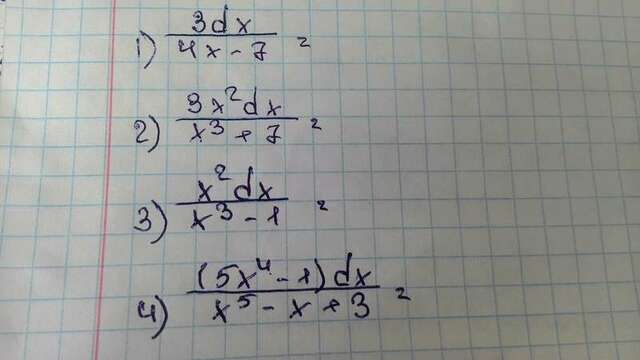 1) 3dx / 4x - 7 =
2) 3x² dx / x³ + 7 =
3) x² dx / x³ - 1 =
4) (5x⁴ - 1) dx / x⁵ - x + 3 =